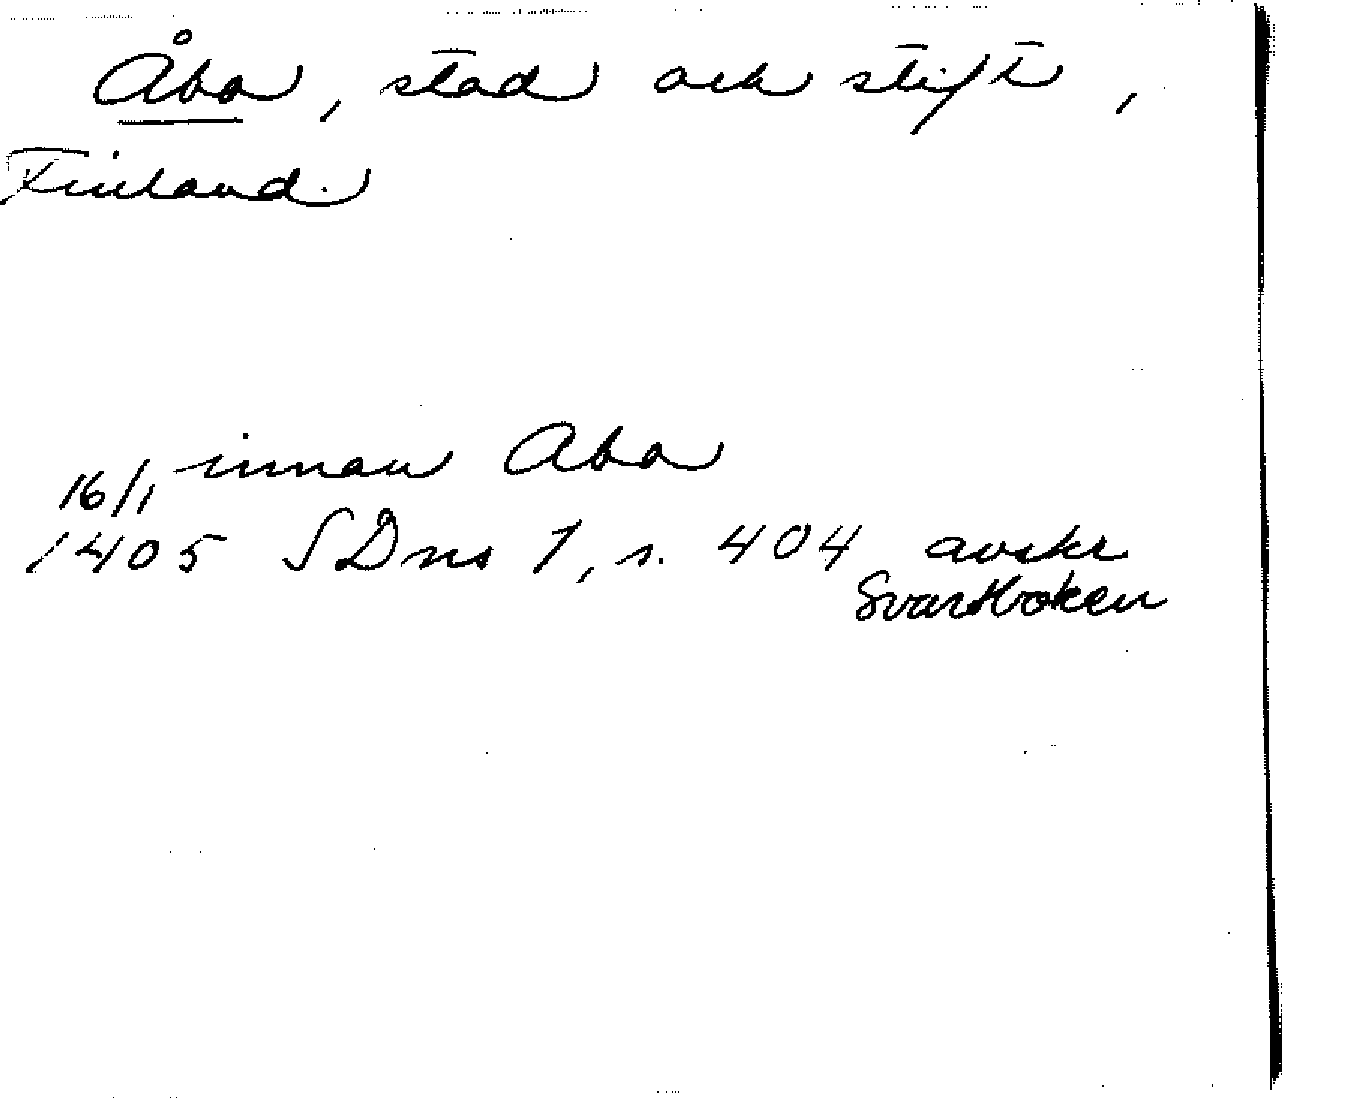 Åbo, stad och stift,
Finland.
innan Abo
16/1
1405 SDns 1, s. 404 avskr
Svartboken